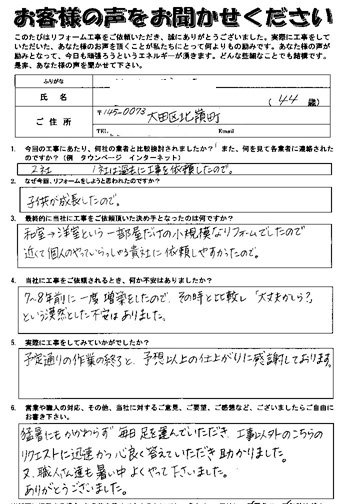 お客様の声をお聞かせください
このたびはリフォーム工事をご依頼いただき、誠にありがとうございました。実際に工事をして
いただいた、あなた様のお声を頂くことが私たちにとって何よりもの励みです。あなた様の声が
励みとなって、今日も頑張ろうというエネルギーが湧きます。どんな些細なことでも結構です。
是非、あなた様の声を聞かせて下さい。
ふりがな
氏 名 (44 歳)
ご 住 所 〒145-0073 大田区北嶺町
TEL Email
1. 今回の工事にあたり、何社の業者と比較検討されましたか? また、何を見て各業者に連絡された
のですか?(例 タウンページ インターネット)
2社 1社は過去に工事を依頼したので。
2. なぜ今回、リフォームをしようと思われたのですか?
子供が成長したので。
3. 最終的に当社に工事をご依頼頂いた決め手となったのは何ですか?
和室→洋室という一部屋だけの小規模なリフォームでしたので
近くて個人のやっていらっしゃる貴社に依頼しやすかったので。
4. 当社に工事をご依頼されるとき、何か不安はありましたか?
7~8年前に一度増築をしたので、その時と比較し「大丈夫かしら?」
という漠然とした不安はありました。
5. 実際に工事をしてみていかがでしたか?
予定通りの作業の終了と、予想以上の仕上がりに感謝しております。
6. 営業や職人の対応、その他、当社に対するご意見、ご要望、ご感想など、ございましたらご自由に
お書き下さい。
猛暑にもかかわらず毎日足を運んでいただき、工事以外のこちらの
リクエストに迅速かつ心良く答えていただき助かりました。
又、職人さん達も暑い中よくやって下さいました。
ありがとうございました。